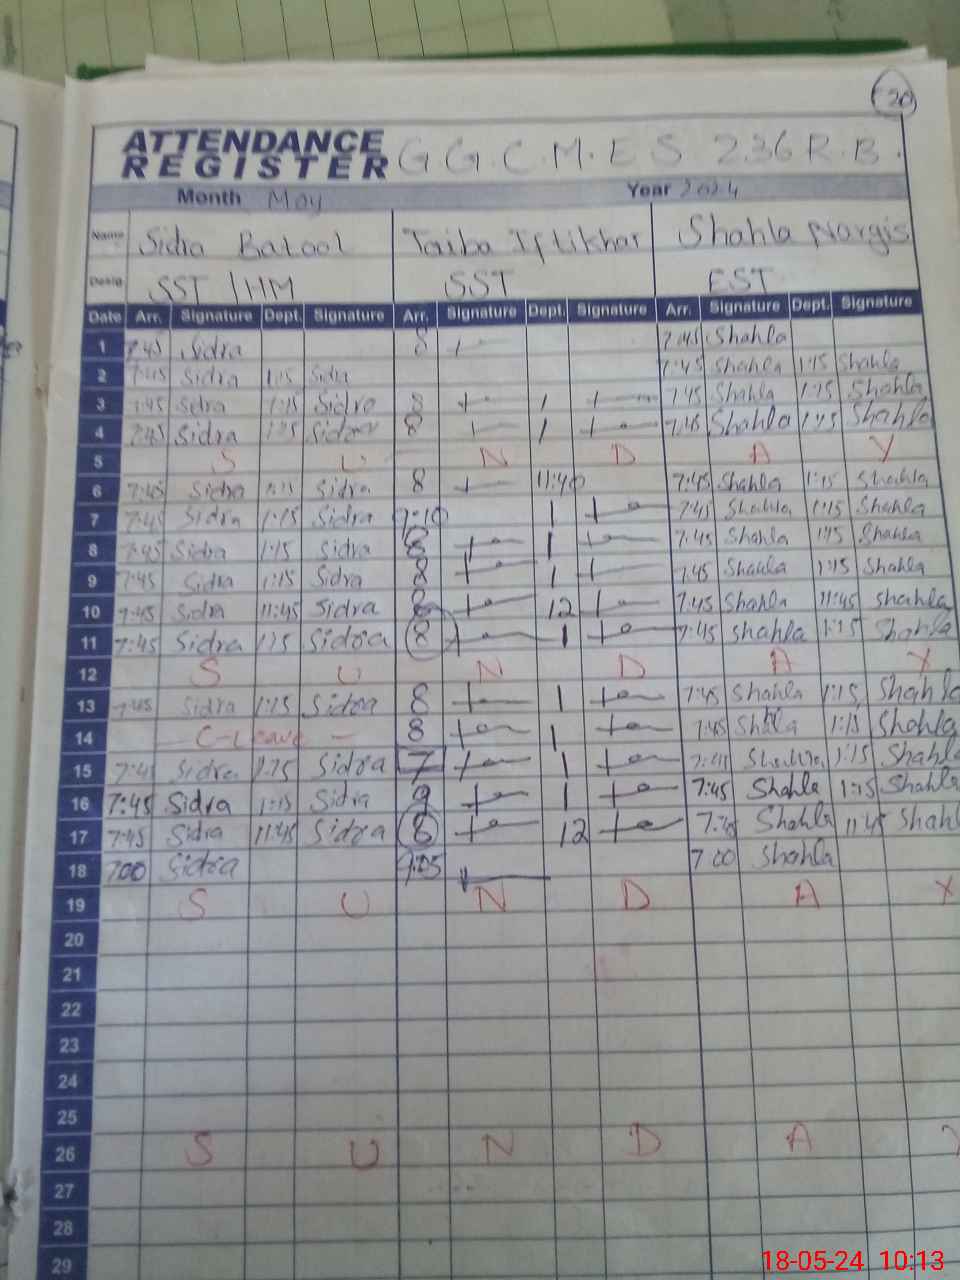 20
ATTENDANCE
REGISTER G G.C.M.E S 236 R.B.
Month May Year 2024
Name Sidra Batool Taiba Iftikhar Shahla Nargis
Desig. SST/HM SST EST
Date Arr. Signature Dept. Signature Arr. Signature Dept. Signature Arr. Signature Dept. Signature
1 7:45 Sidra 8 7:45 Shahla
2 7:45 Sidra 1:15 Sidra 7:45 Shahla 1:15 Shahla
3 7:45 Sidra 1:15 Sidra 8 1 7:45 Shahla 1:15 Shahla
4 7:45 Sidra 1:15 Sidra 8 1 7:45 Shahla 1:15 Shahla
5 S U N D A Y
6 7:45 Sidra 1:15 Sidra 8 11:40 7:45 Shahla 1:15 Shahla
7 7:45 Sidra 1:15 Sidra 7:10 1 7:45 Shahla 1:15 Shahla
8 7:45 Sidra 1:15 Sidra 8 1 7:45 Shahla 1:15 Shahla
9 7:45 Sidra 1:15 Sidra 8 1 7:45 Shahla 1:15 Shahla
10 7:45 Sidra 11:45 Sidra 8 12 7:45 Shahla 11:45 Shahla
11 7:45 Sidra 1:15 Sidra 8 1 7:45 Shahla 1:15 Shahla
12 S U N D A Y
13 7:45 Sidra 1:15 Sidra 8 1 7:45 Shahla 1:15 Shahla
14 C-Leave - 8 1 7:45 Shahla 1:15 Shahla
15 7:45 Sidra 1:15 Sidra 7 1 7:45 Shahla 1:15 Shahla
16 7:45 Sidra 1:15 Sidra 1 7:45 Shahla 1:15 Shahla
17 7:45 Sidra 11:45 Sidra 8 12 7:45 Shahla 11:45 Shahl
18 7:00 Sidra 9:05 7:00 Shahla
19 S U N D A Y
20
21
22
23
24
25
26 S U N D A Y
27
28
29
18-05-24 10:13